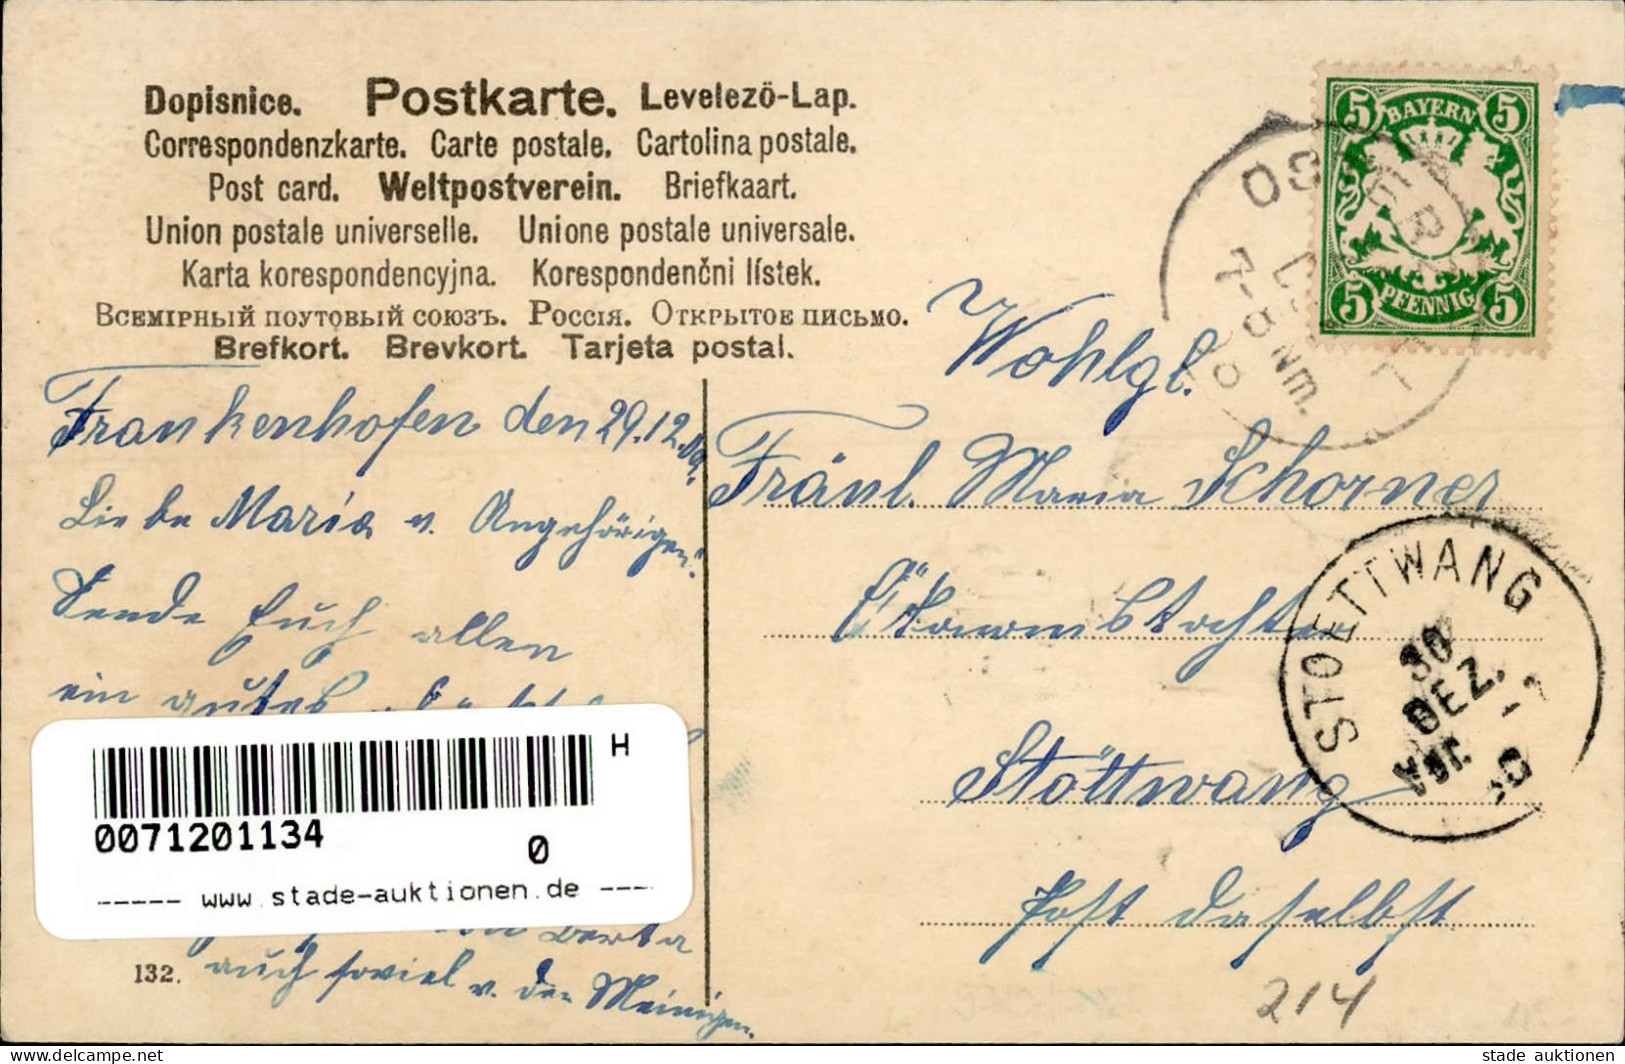 Dopisnice. Postkarte. Levelezö-Lap.
Correspondenzkarte. Carte postale. Cartolina postale.
Post card. Weltpostverein. Briefkaart.
Union postale universelle. Unione postale universale.
Karta korespondencyjna. Korespondenčni lístek.
Всемірный поутовый союзъ. Россія. Открытое письмо.
Brefkort. Brevkort. Tarjeta postal.
5 BAYERN 5
5 PFENNIG 5
7-8 Nm.
Frankenhofen den 29.12.09.
Liebe Maria u. Angehörigen!
Sende Euch allen
ein gutes
Berta
auch soviel v. den Meinigen.
132.
Wohlgb.
Fräul. Maria Schorner
Ökonomstochter
Stöttwang
Post daselbst
STOETTWANG
30
DEZ.
214
H
0071201134
0
----- www.stade-auktionen.de ----
www.delcampe.net
stade auktionen